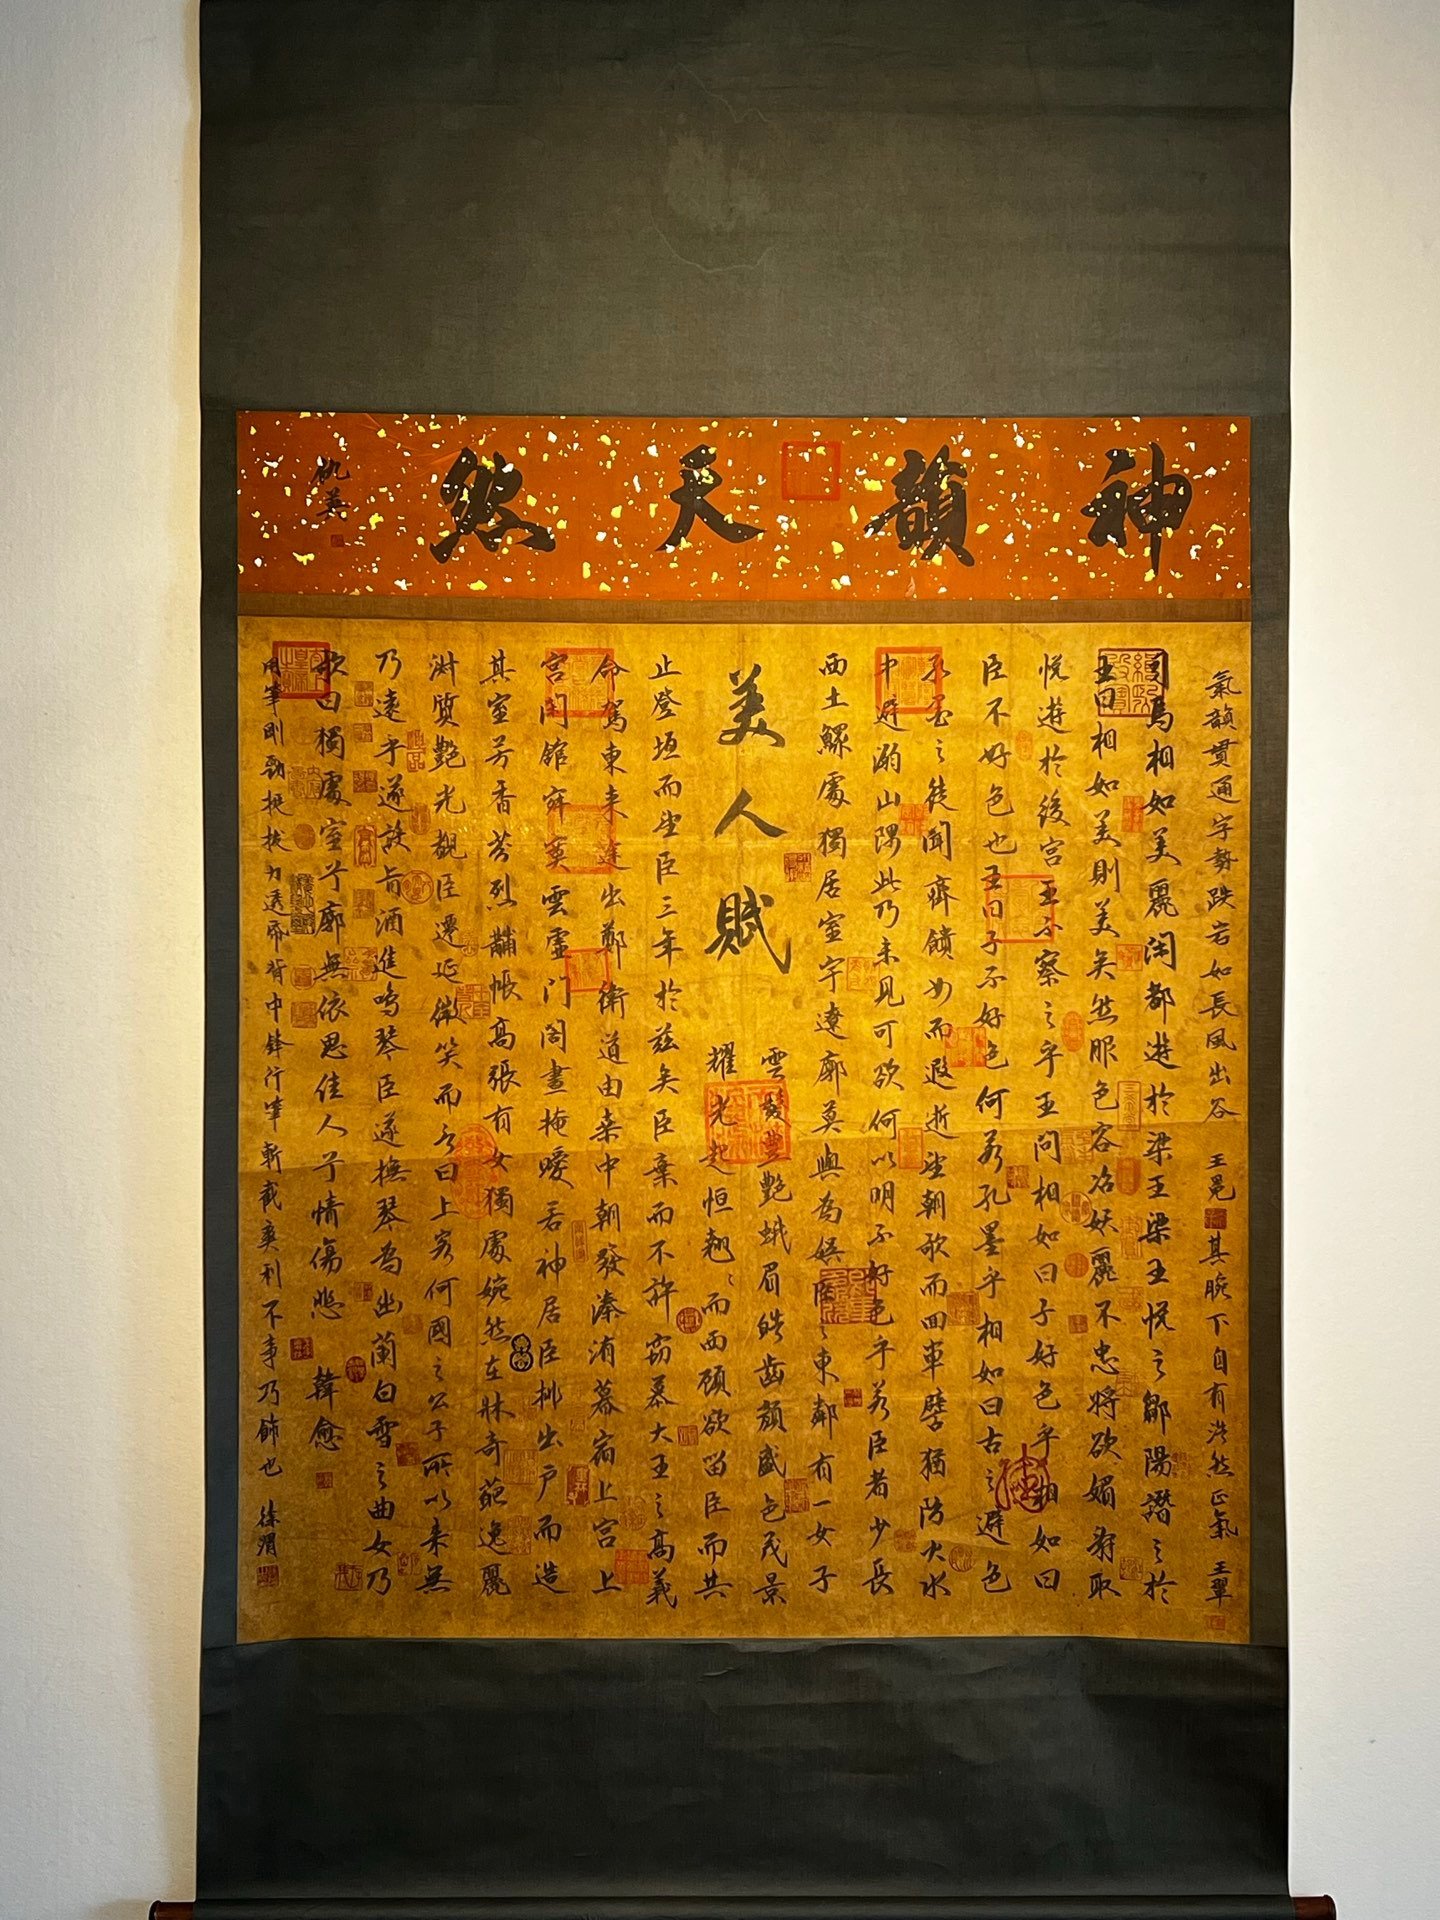 神韻天然
仇英
氣韻貫通字勢跌宕如長風出谷 王冕 其腕下自有浩然正氣 王翬
司馬相如美麗閑都遊於梁王梁王悅之鄒陽譖之於
王曰相如美則美矣然服色容冶妖麗不忠將欲媚辭取
悅遊於後宮王不察之乎王問相如曰子好色乎相如曰
臣不好色也王曰子不好色何若孔墨乎相如曰古之避色
孔墨之徒聞齊饋女而遐逝望朝歌而回車譬猶防火水
中避溺山隅此乃未見可欲何以明不好色乎若臣者少長
西土鰥處獨居室宇遼廓莫與為娛臣之東鄰有一女子
美人賦
雲髮豐艷蛾眉皓齒顏盛色茂景
耀光起恒翹翹而西顧欲留臣而共
止登垣而望臣三年於茲矣臣棄而不許竊慕大王之高義
命駕東來途出鄭衛道由桑中朝發溱洧暮宿上宮上
宮閑館寂寞雲虛門閤晝掩曖若神居臣排出戶而造
其室芳香芬烈黼帳高張有女獨處婉然在牀奇葩逸麗
淑質艷光覩臣遷延微笑而言曰上客何國之公子所以來無
乃遠乎遂設旨酒進鳴琴臣遂撫琴為幽蘭白雪之曲女乃
歌曰獨處室兮廓無依思佳人兮情傷悲 韓愈
用筆剛勁挺拔力透帋背中鋒行筆斬截爽利不事乃飾也 徐渭